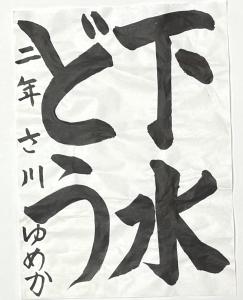 下水
どう
二年 さ川 ゆめか